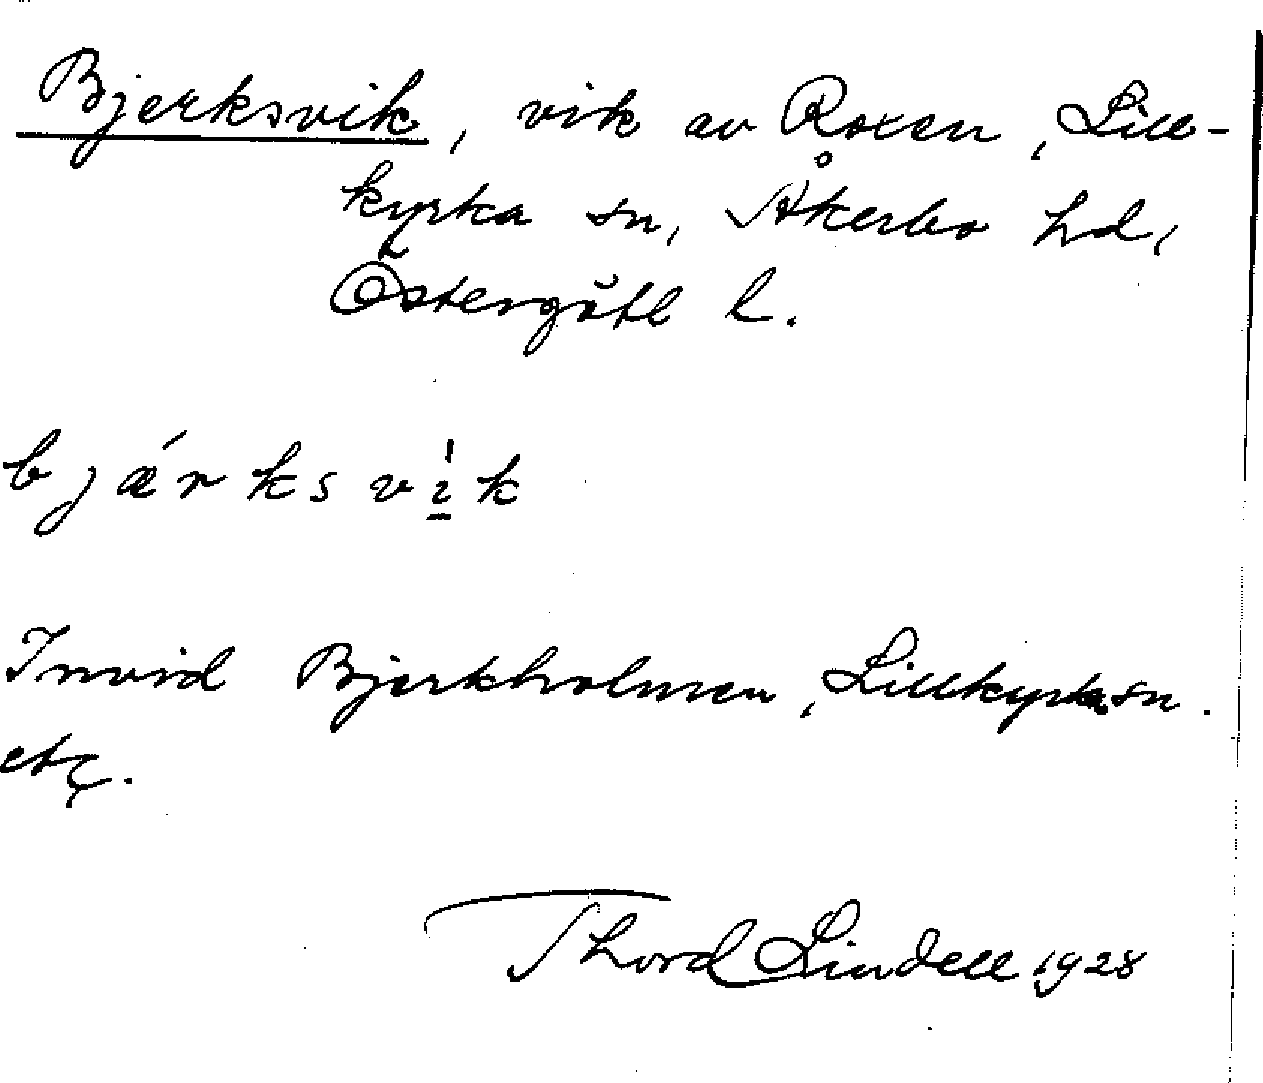 Bjerksvik, vik av Roxen, Lill-
kyrka sn, Åkerbo hd,
Östergötl l.
bjǽrksvi̠̍k
Invid Bjerkholmen, Lillkyrka sn.
etc.
Thord Lindell 1928